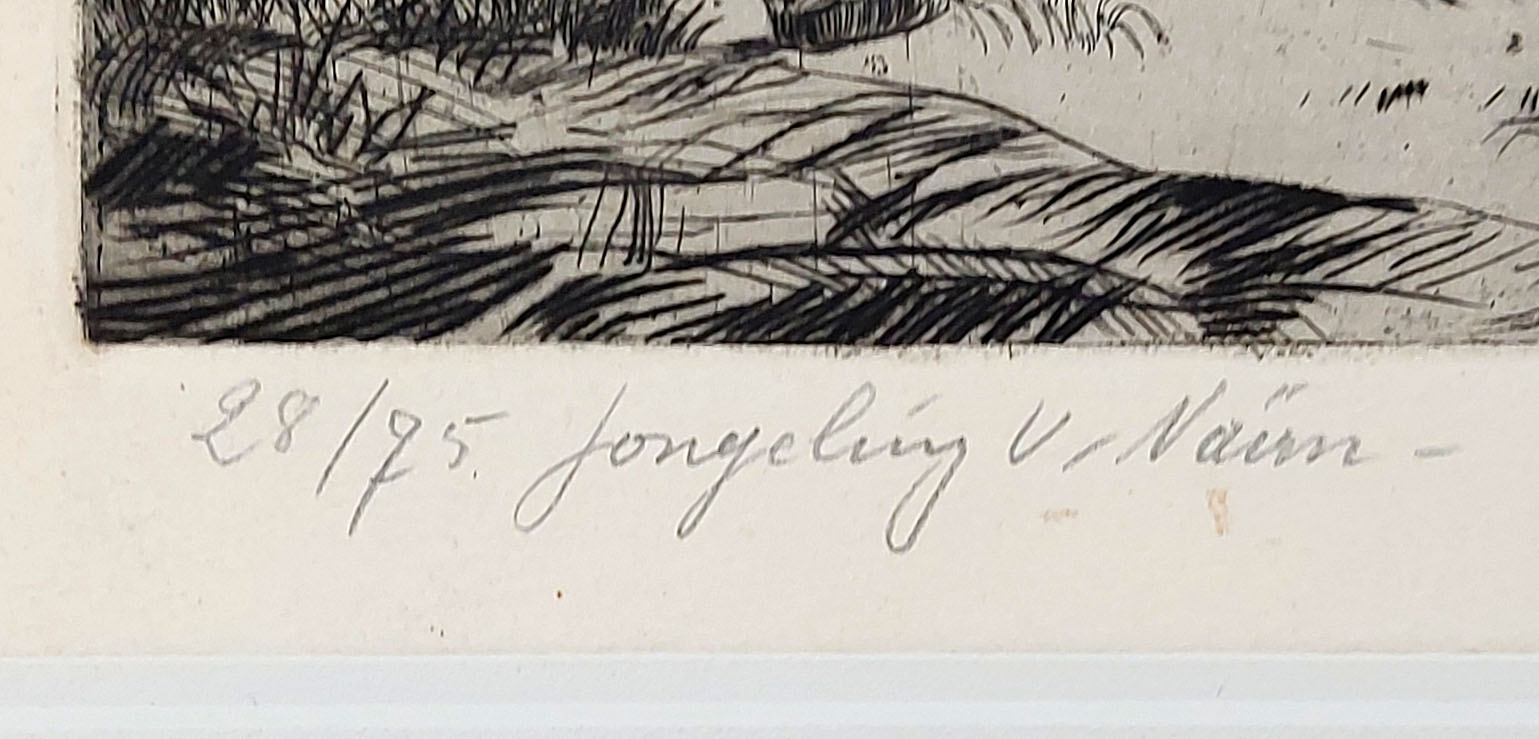 28/75. Jongeling v. Naïn -